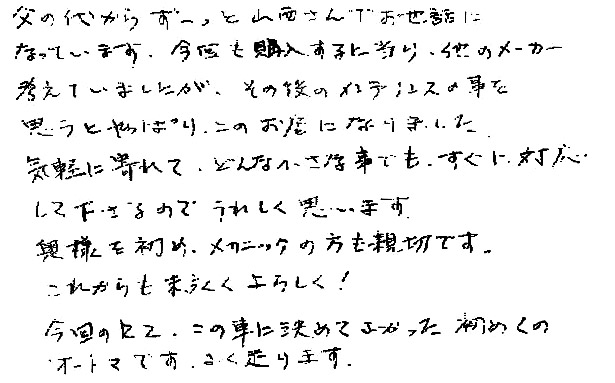 父の代からずーっと山西さんでお世話に
なっています。今回も購入するに当り、他のメーカー
考えていましたが、その後のメンテナンスの事を
思うとやっぱり、このお店になりました。
気軽に寄れて、どんな小さな事でも、すぐに対応
して下さるのでうれしく思います。
奥様を初め、メカニックの方も親切です。
これからも末永くよろしく!
今回の 、この車に決めてよかった 初めての
オートマです。よく走ります。